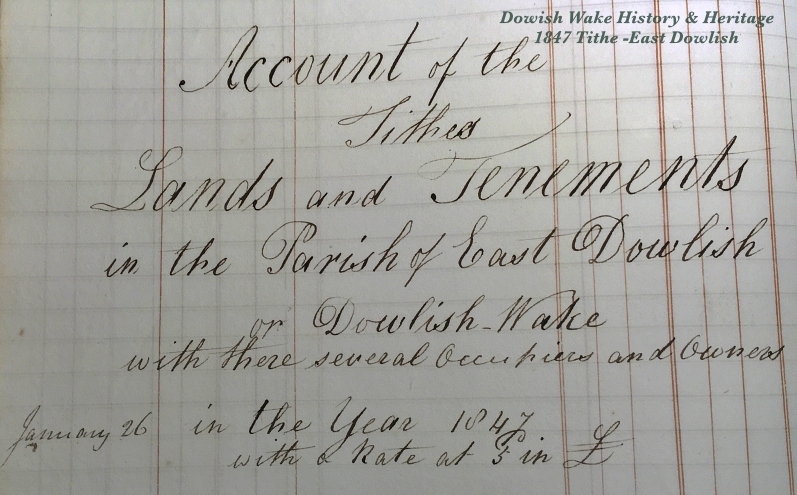 Dowish Wake History & Heritage
1847 Tithe -East Dowlish
Account of the
Tithes
Lands and Tenements
in the Parish of East Dowlish
or Dowlish-Wake
with there several Occupiers and Owners
January 26 in the Year 1847
with a Rate at 5 in £